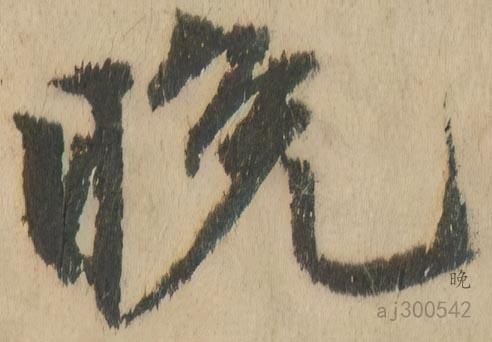 晚
晚
aj300542